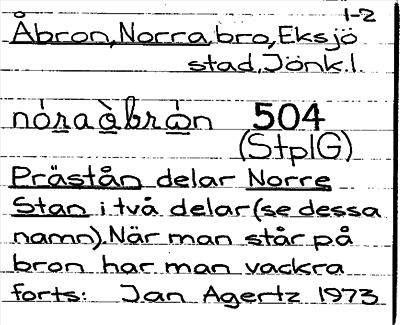 1-2
Åbron, Norra, bro, Eksjö
stad, Jönk.l.
nó̱raà̱brȧ̱n 504
(StplG)
Prästån delar Norre
Stan i två delar (se dessa
namn). När man står på
bron har man vackra
forts: Jan Agertz 1973